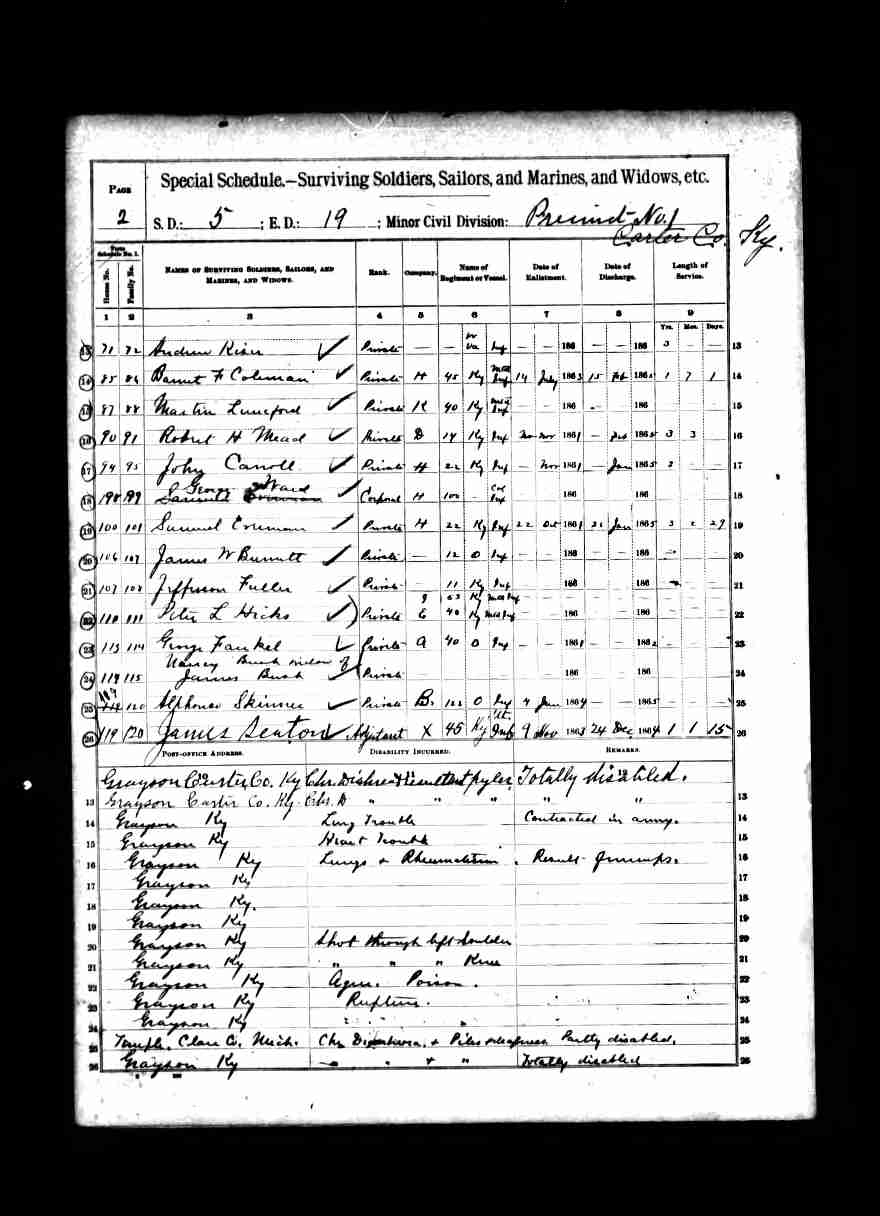 PAGE
2
Special Schedule.—Surviving Soldiers, Sailors, and Marines, and Widows, etc.
S. D.: 5 ; E. D.: 19 ; Minor Civil Division: Precinct No. 1
Carter Co. Ky.
From Schedule No. 1.
House No. Family No. NAMES OF SURVIVING SOLDIERS, SAILORS, AND MARINES, AND WIDOWS. Rank. Company. Name of Regiment or Vessel. Date of Enlistment. Date of Discharge. Length of Service.
1 2 3 4 5 6 7 8 9
Yrs. Mos. Days.
13 71 72 Andrew Kiser Private — — W Va Inf — — 186 — — 186 3 — — 13
14 85 86 Barnet F Coleman Private H 45 Ky Mtd Inf 14 July 1863 15 Feb 1865 1 7 1 14
15 87 88 Martin Lunsford Private K 40 Ky Mtd Inf — — 186 — — 186 15
16 90 91 Robert H Mead Private D 14 Ky Inf Nov 1861 — 1865 3 3 — 16
17 94 95 John Carroll Private H 22 Ky Inf — Nov 1861 — Jan 1865 — 17
George Ward
18 Samuel Corporal H 100 — Col Inf 186 186 18
19 100 101 Samuel Private H 22 Ky Inf 22 Oct 1861 21 Jan 1865 3 2 29 19
20 106 107 James W Burnett Private — 12 O Inf — — 186 — — 186 20
21 107 108 Jefferson Fuller Private 11 Ky Inf — — 186 — — 186 21
63 Ky Mtd Inf
22 110 111 Peter L Hicks Private E 40 Ky Mtd Inf — — 186 — — 186 22
23 113 114 George Faukel Private A 40 O Inf — — 1861 — — 1862 23
Nancy Bush widow of
24 114 115 James Bush Private 186 186 24
119
25 120 Alphonso Skinner Private B. 122 O Inf 4 Jan 1864 — — 1865 25
26 119 120 James Seaton Adjutant X 45 Ky Inf 9 Nov 1863 24 Dec 1864 1 1 15 26
POST-OFFICE ADDRESS. DISABILITY INCURRED. REMARKS.
10 11 12
Grayson Carter Co. Ky Totally disabled.
13 Grayson Carter Co. Ky. Chr. D " " " " " 13
14 Grayson Ky Lung Trouble Contracted in army. 14
15 Grayson Ky Heart Trouble 15
16 Grayson Ky Lungs & Rheumatism. Result of mumps. 16
17 Grayson Ky 17
18 Grayson Ky. 18
19 Grayson Ky 19
20 Grayson Ky Shot through left shoulder 20
21 Grayson Ky " " " Knee 21
22 Grayson Ky Ague. Poison. 22
23 Grayson Ky Rupture. 23
24 Grayson Ky 24
25 Temple. Clare Co. Mich. Chr & Piles Partly disabled. 25
26 Grayson Ky — " & " Totally disabled 26